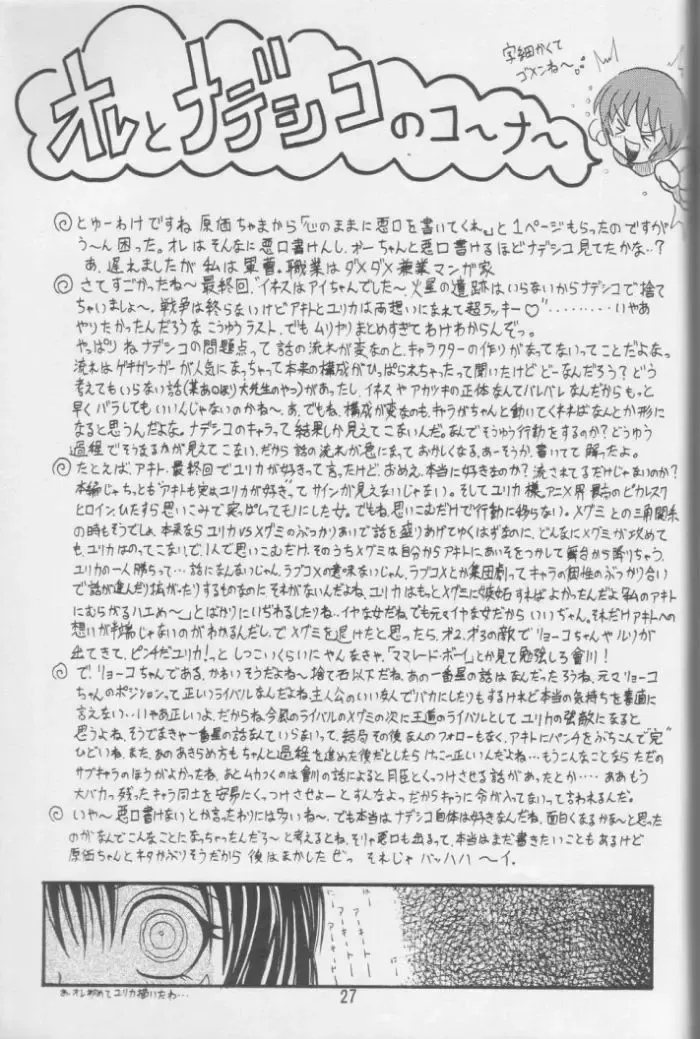 オレとナデシコのコ～ナ～
字細かくて
ゴメンね～。
とゆーわけですね 原価ちゃまから「心のままに悪口を書いてくれ。」と1ページもらったのですが
う～ん困った。オレはそんなに悪口書けんし、かーちゃんと悪口書けるほどナデシコ見てたかな..?
あ、遅れましたが 私は 軍曹。職業は ダメダメ兼業マンガ家
さてすごかったね～最終回、"イネスはアイちゃんでした～火星の遺跡はいらないからナデシコで捨て
ちゃいましょ～。戦争は終らないけどアキトとユリカは両想いになれて超ラッキー♡"………いやあ
やりたかったんだろうな こうゆうラスト、でもムリヤリまとめすぎてわけわからんぞっ。
やっぱりね ナデシコの問題点って 話の流れが変なのと、キャラクターの作りがなってないってことだよなっ。
流れはゲキガンガーが人気になっちゃって本来の構成がひっぱられちゃったって聞いたけどどーなんだろう?どう
考えてもいらない話(某あ○ほり大先生のやつ)があったし、イネスやアカツキの正体なんてバレバレなんだからもっと
早くバラしてもいいんじゃないのかね～あ、でもね、構成が変なのも、キャラがちゃんと動いてくれればなんとか形に
なると思うんだよな。ナデシコのキャラって結果しか見えてこないんだ。なんでそうゆう行動をするのか?どうゆう
過程でそうなるかが見えてこない、だから話の流れが急になっておかしくなる、あーそうか、書いてて解ったよ。
たとえば、アキト、最終回でユリカが好きって言ったけど、おめえ、本当に好きなのか?流されてるだけじゃないのか?
本編じゃちっとも"アキトも実はユリカが好き"ってサインが見えないじゃない。そしてユリカ様、アニメ界最高のピカレスク
ヒロイン、ひたすら思いこみで突っぱしてモノにした女。でもね、思いこむだけで行動に移らない。メグミとの三角関係
の時もそうでしょ、本来なら ユリカVSメグミのぶっかりあいで話を盛りあげてゆくはずなのに、どんなにメグミが攻めて
も、ユリカはのってこないで、1人で思いこむだけ、そのうちメグミは自分からアキトにあいそをつかして舞台から降りちゃう。
ユリカの一人勝ちって…話になんないじゃん、ラブコメの意味ないじゃん。ラブコメとか集団劇ってキャラの個性のぶつかり合い
で話が進んだり拡がったりするものなのに、それがないんだよね。ユリカはもっとメグミに嫉妬すればよかったんだよ「私のアキト
にむらがるハエめ～」とばかりにいぢわるしたりね…イヤな女だね、でも元々イヤな女だからいいぢゃん。それだけアキトへの
想いが半端じゃないのがわかるんだし。で メグミを退けたと思ったら、オ2、オ3の敵でリョーコちゃんや ルリが
出てきて、ピンチだユリカ!っと しつこいくらいに やんなきゃ、「ママレード・ボーイ」とか見て勉強しろ會川!
で、リョーコちゃんである、かわいそうだよね～捨て石以下だね、あの一番星の話はなんだったろうね、元々リョーコ
ちゃんのポジションって、正しいライバルなんだよね。主人公のいい女んでバカにしたりもするけれど本当の気持ちを素直に
言えない…いやあ正しいよ、だからね、今風のライバルのメグミの次に王道のライバルとして ユリカの強敵になると
思うよね、そうでまきゃ一番星の話なんていらないって、結局その後なんのフォローもなく、アキトにパンチをぶちこんで"完"
ひどいね、また、あのあきらめ方もちゃんと過程を進めた後だとしたら けっこー正しいんだよね…もうこんなことなら ただの
サブキャラのほうがよかったね、あとムカつくのは會川の話によると月臣とくっつけさせる話があったとか……ああもう
大バカっ 残ったキャラ同士を安易にくっつけさせよーとすんなよっ だからキャラに命が入ってないって言われるんだ。
いや～悪口書けないとか言ったわりには多いね～、でも本当は ナデシコ自体は好きなんだね、面白くなるかな～と思った
のがなんでこんなことになっちゃったんだろ～と考えるとね、そりゃ悪口も出るって、本当はまだ書きたいこともあるけど
原価ちゃんとネタかぶりそうだから 後はまかした ぜっ それじゃ バッハハ ～イ。
あ、オレ初めてユリカ描いたわ…
27